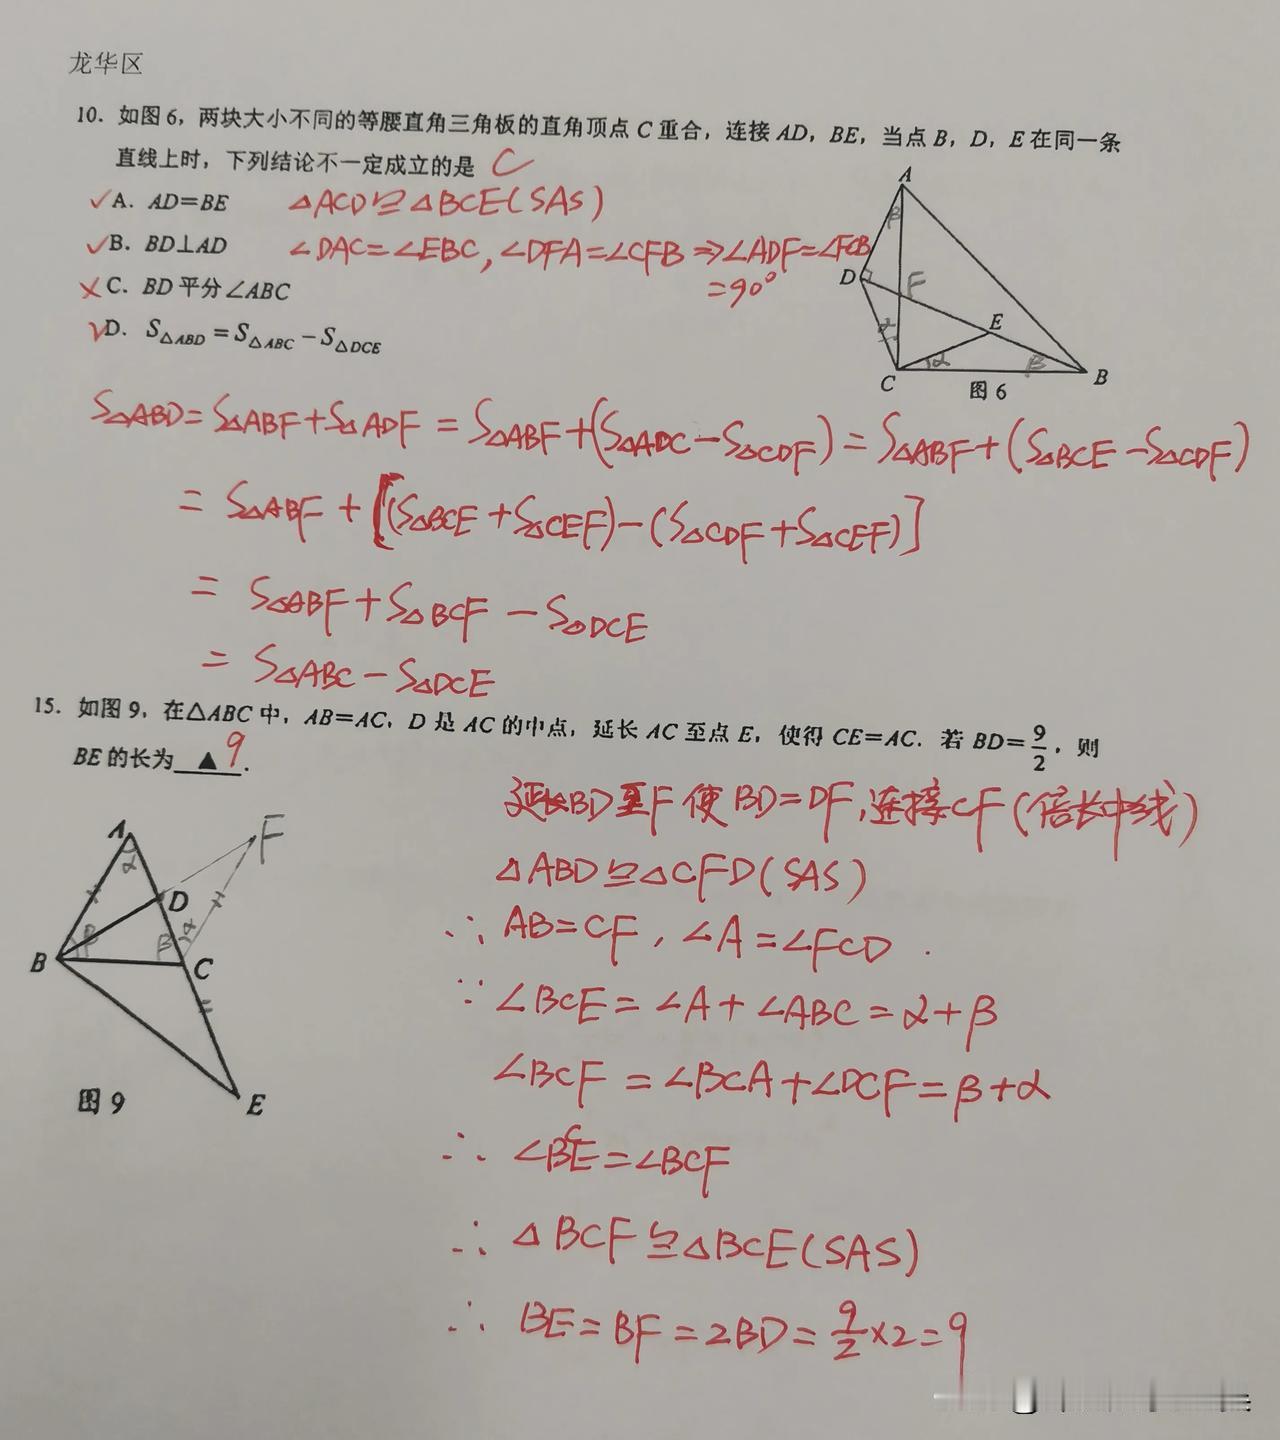 龙华区
10. 如图6，两块大小不同的等腰直角三角板的直角顶点 C 重合，连接 AD，BE，当点 B，D，E 在同一条
直线上时，下列结论不一定成立的是 C
✓A. AD=BE △ACD≌△BCE(SAS)
✓B. BD⊥AD ∠DAC=∠EBC, ∠DFA=∠CFB ⇒∠ADF=∠FCB
=90°
×C. BD 平分∠ABC
✓D. S△ABD=S△ABC-S△DCE
A
β
D
F
E
α
α
β
C
B
图6
S△ABD=S△ABF+S△ADF=S△ABF+(S△ADC-S△CDF)=S△ABF+(S△BCE-S△CDF)
=S△ABF+[(S△BCE+S△CEF)-(S△CDF+S△CEF)]
=S△ABF+S△BCF-S△DCE
=S△ABC-S△DCE
15. 如图9，在△ABC中，AB=AC，D 是 AC 的中点，延长 AC 至点 E，使得 CE=AC．若 BD=9/2，则
BE 的长为 ▲ 9 .
延长BD至F使BD=DF,连接CF(倍长中线)
△ABD≌△CFD(SAS)
∴ AB=CF, ∠A=∠FCD.
∵ ∠BCE=∠A+∠ABC=α+β
∠BCF=∠BCA+∠DCF=β+α
∴ ∠BCE=∠BCF
∴ △BCF≌△BCE(SAS)
∴ BE=BF=2BD=9/2×2=9
A
F
α
D
β
β
α
B
C
E
图9